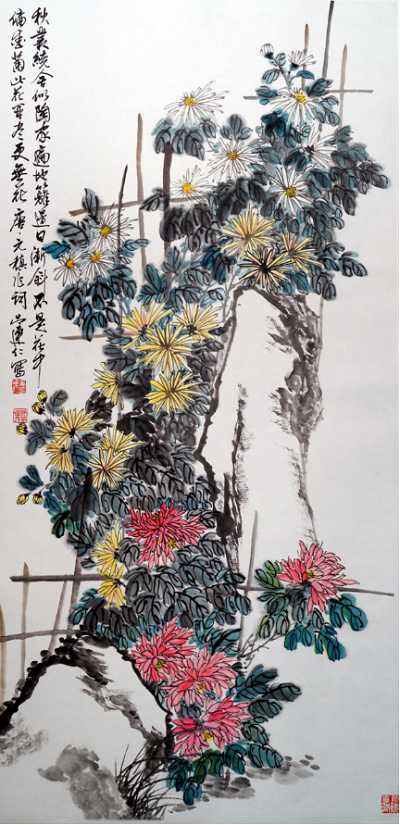 秋叢繞舍似陶家遍地籬邊日漸斜不是花中
偏愛菊此花開尽更無花唐元稹詞連仁寫